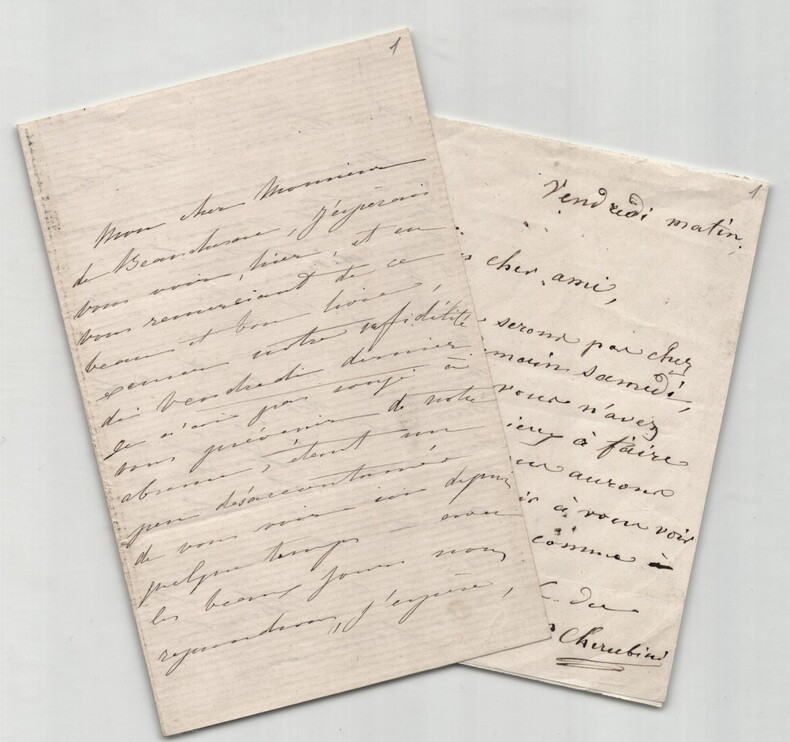 1
Mon cher Monsieur
de Beauchesne, j'espérais
vous voir, hier, et en
vous remerciant de ce
beau et bon livre,
excuser notre infidélité
de Vendredi dernier
Je n'ai pas songé à
vous prévenir de notre
absence, étant un
peu désaccoutumée
de vous voir ici depuis
quelque temps – mais
les beaux jours nous
rejoindrons, j'espère,
1
Vendredi matin.
cher ami,
serons par chez
main samedi,
vous n'avez
ieux à faire
aurons
à vous voir
comme à
S. de
Cherubini